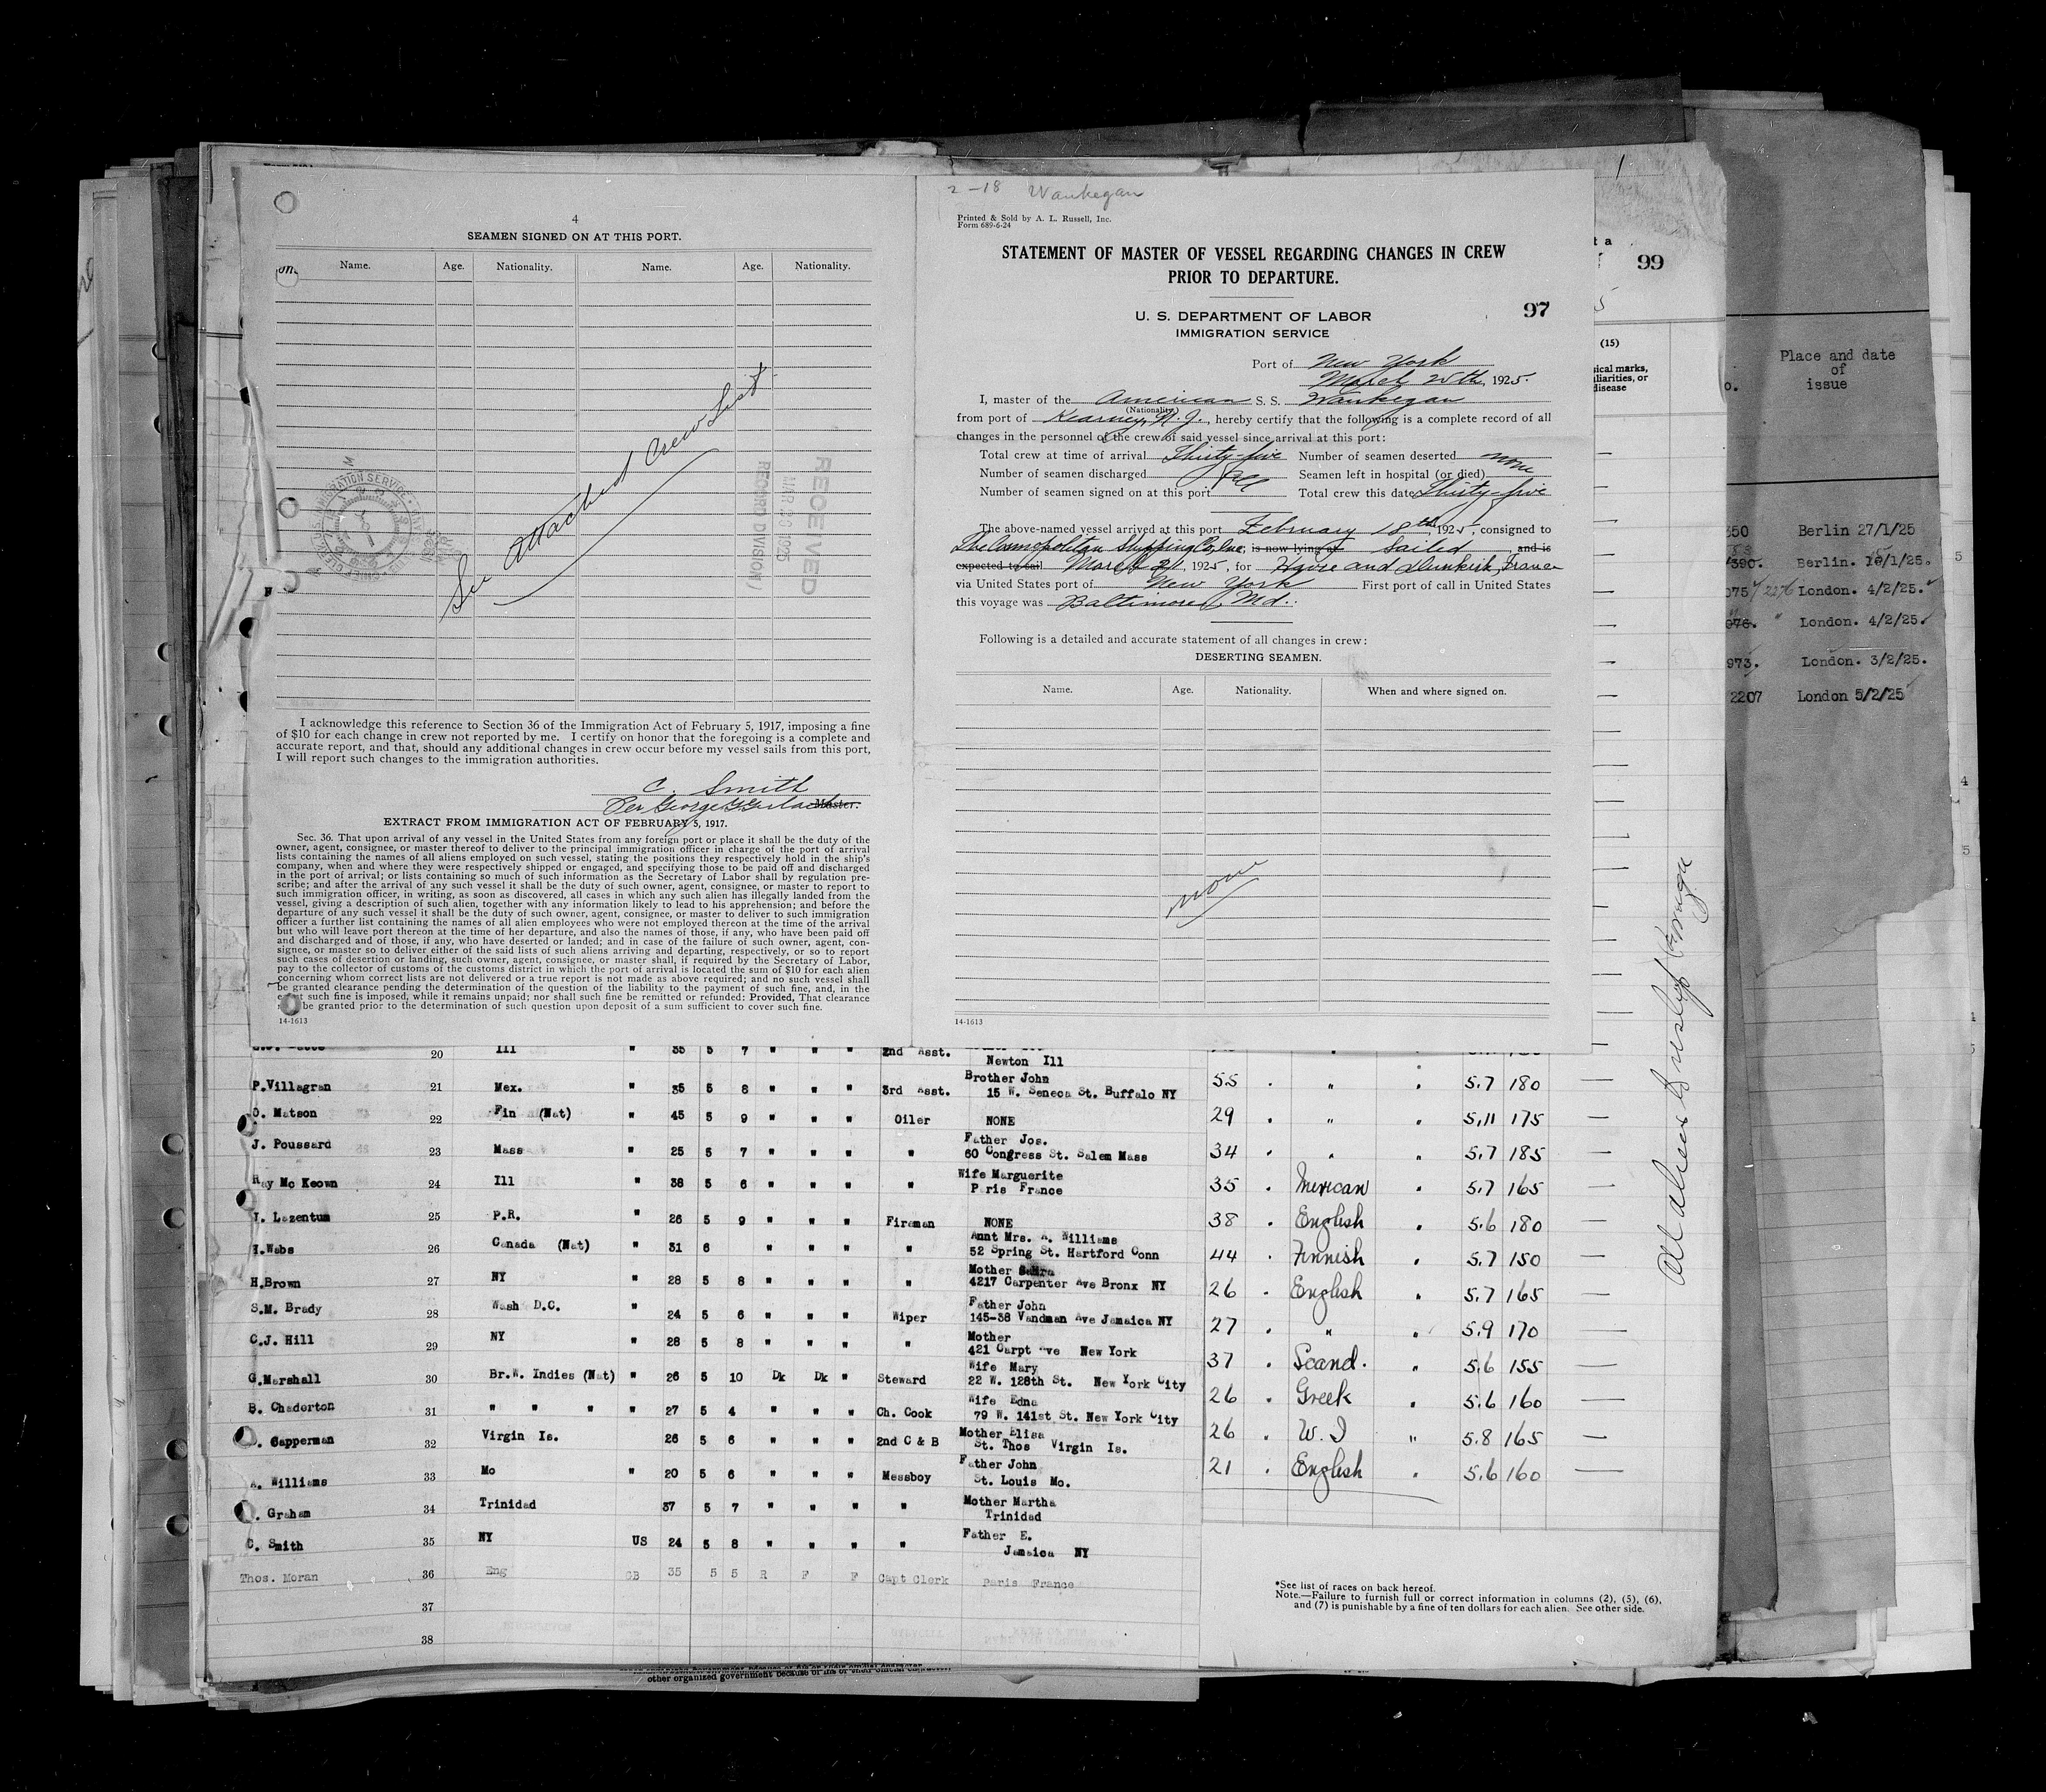 4
SEAMEN SIGNED ON AT THIS PORT.
Name. Age. Nationality. Name. Age. Nationality.
See Attached Crew List
RECEIVED
MAR 30 1925
RECORD DIVISION
I acknowledge this reference to Section 36 of the Immigration Act of February 5, 1917, imposing a fine
of $10 for each change in crew not reported by me. I certify on honor that the foregoing is a complete and
accurate report, and that, should any additional changes in crew occur before my vessel sails from this port,
I will report such changes to the immigration authorities.
C. Smith
Per George Master.
EXTRACT FROM IMMIGRATION ACT OF FEBRUARY 5, 1917.
Sec. 36. That upon arrival of any vessel in the United States from any foreign port or place it shall be the duty of the
owner, agent, consignee, or master thereof to deliver to the principal immigration officer in charge of the port of arrival
lists containing the names of all aliens employed on such vessel, stating the positions they respectively hold in the ship's
company, when and where they were respectively shipped or engaged, and specifying those to be paid off and discharged
in the port of arrival; or lists containing so much of such information as the Secretary of Labor shall by regulation pre-
scribe; and after the arrival of any such vessel it shall be the duty of such owner, agent, consignee, or master to report to
such immigration officer, in writing, as soon as discovered, all cases in which any such alien has illegally landed from the
vessel, giving a description of such alien, together with any information likely to lead to his apprehension; and before the
departure of any such vessel it shall be the duty of such owner, agent, consignee, or master to deliver to such immigration
officer a further list containing the names of all alien employees who were not employed thereon at the time of the arrival
but who will leave port thereon at the time of her departure, and also the names of those, if any, who have been paid off
and discharged and of those, if any, who have deserted or landed; and in case of the failure of such owner, agent, con-
signee, or master so to deliver either of the said lists of such aliens arriving and departing, respectively, or so to report
such cases of desertion or landing, such owner, agent, consignee, or master shall, if required by the Secretary of Labor,
pay to the collector of customs of the customs district in which the port of arrival is located the sum of $10 for each alien
concerning whom correct lists are not delivered or a true report is not made as above required; and no such vessel shall
be granted clearance pending the determination of the question of the liability to the payment of such fine, and, in the
such fine is imposed, while it remains unpaid; nor shall such fine be remitted or refunded: Provided, That clearance
be granted prior to the determination of such question upon deposit of a sum sufficient to cover such fine.
14-1613
2-18 Waukegan
Printed & Sold by A. L. Russell, Inc.
Form 689-6-24
STATEMENT OF MASTER OF VESSEL REGARDING CHANGES IN CREW
PRIOR TO DEPARTURE.
97
U. S. DEPARTMENT OF LABOR
IMMIGRATION SERVICE
Port of New York
March 25th, 1925.
I, master of the American S. S. Waukegan
(Nationality)
from port of Kearney, N. J., hereby certify that the following is a complete record of all
changes in the personnel of the crew of said vessel since arrival at this port:
Total crew at time of arrival Thirty-five Number of seamen deserted none
Number of seamen discharged all Seamen left in hospital (or died)
Number of seamen signed on at this port Total crew this date Thirty-five
The above-named vessel arrived at this port February 18th, 1925, consigned to
The Cosmopolitan Shipping Co, Inc, is now lying at Sailed and is
expected to sail March 21, 1925, for Havre and Dunkirk, France
via United States port of New York First port of call in United States
this voyage was Baltimore, Md.
Following is a detailed and accurate statement of all changes in crew:
DESERTING SEAMEN.
Name. Age. Nationality. When and where signed on.
none
14-1613
99
(15)
ical marks,
liarities, or
disease
Place and date
of
issue
350 Berlin 27/1/25
390. Berlin. 1/25.
075 2276 London. 4/2/25.
076. " London. 4/2/25.
973. London. 3/2/25.
2207 London 5/2/25
20 Ill " 35 5 7 " " " 2nd Asst. Newton Ill
P.Villagran 21 Mex. " 35 5 8 " " " 3rd Asst. Brother John
15 W. Seneca St. Buffalo NY
O. Matson 22 Fin (Nat) " 45 5 9 " " " Oiler NONE
J. Poussard 23 Mass " 25 5 7 " " " " Father Jos.
60 Congress St. Salem Mass
Ray Mc Keown 24 Ill " 38 5 6 " " " " Wife Marguerite
Paris France
I. Lazentum 25 P.R. " 26 5 9 " " " Fireman NONE
H.Wabs 26 Canada (Nat) " 31 6 " " " " Aunt Mrs. A. Williams
52 Spring St. Hartford Conn
H.Brown 27 NY " 28 5 8 " " " " Mother
4217 Carpenter Ave Bronx NY
S.M. Brady 28 Wash D.C. " 24 5 6 " " " Wiper Father John
145-38 Vandman Ave Jamaica NY
C.J. Hill 29 NY " 28 5 8 " " " " Mother
421 Carpt Ave New York
G.Marshall 30 Br.W. Indies (Nat) " 26 5 10 Dk Dk " Steward Wife Mary
22 W. 128th St. New York City
B. Chaderton 31 " " " " 27 5 4 " " " Ch. Cook Wife Edna
79 W. 141st St. New York City
. Capperman 32 Virgin Is. 26 5 6 " " " 2nd C & B Mother Elisa
St. Thos Virgin Is.
A. Williams 33 Mo " 20 5 6 " " " Messboy Father John
St. Louis Mo.
. Graham 34 Trinidad 37 5 7 " " " " Mother Martha
Trinidad
C. Smith 35 NY US 24 5 8 " " " " Father E.
Jamaica NY
Thos. Moran 36 Eng GB 35 5 5 R F F Capt Clerk Paris France
37
38
55 " " 5.7 180
29 " " 5.11 175
34 " " 5.7 185
35 " Mexican " 5.7 165
38 " English " 5.6 180
44 " Finnish " 5.7 150
26 " English " 5.7 165
27 " " " 5.9 170
37 " Scand. " 5.6 155
26 " Greek " 5.6 160
26 " W. I " 5.8 165
21 " English " 5.6 160
*See list of races on back hereof.
Note.—Failure to furnish full or correct information in columns (2), (5), (6),
and (7) is punishable by a fine of ten dollars for each alien. See other side.
other organized government because of his or their official character